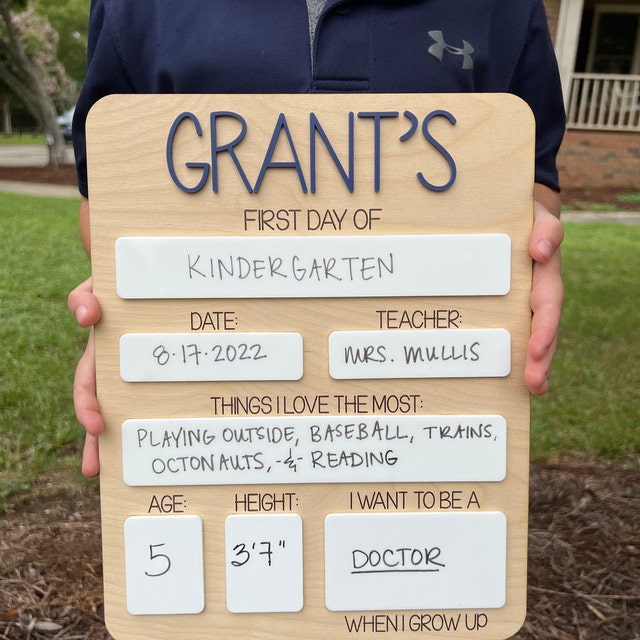 GRANT'S
FIRST DAY OF
KINDERGARTEN
DATE: TEACHER:
8·17·2022 MRS. MULLIS
THINGS I LOVE THE MOST:
PLAYING OUTSIDE, BASEBALL, TRAINS,
OCTONAUTS, -&- READING
AGE: HEIGHT: I WANT TO BE A
5 3'7" DOCTOR
WHEN I GROW UP